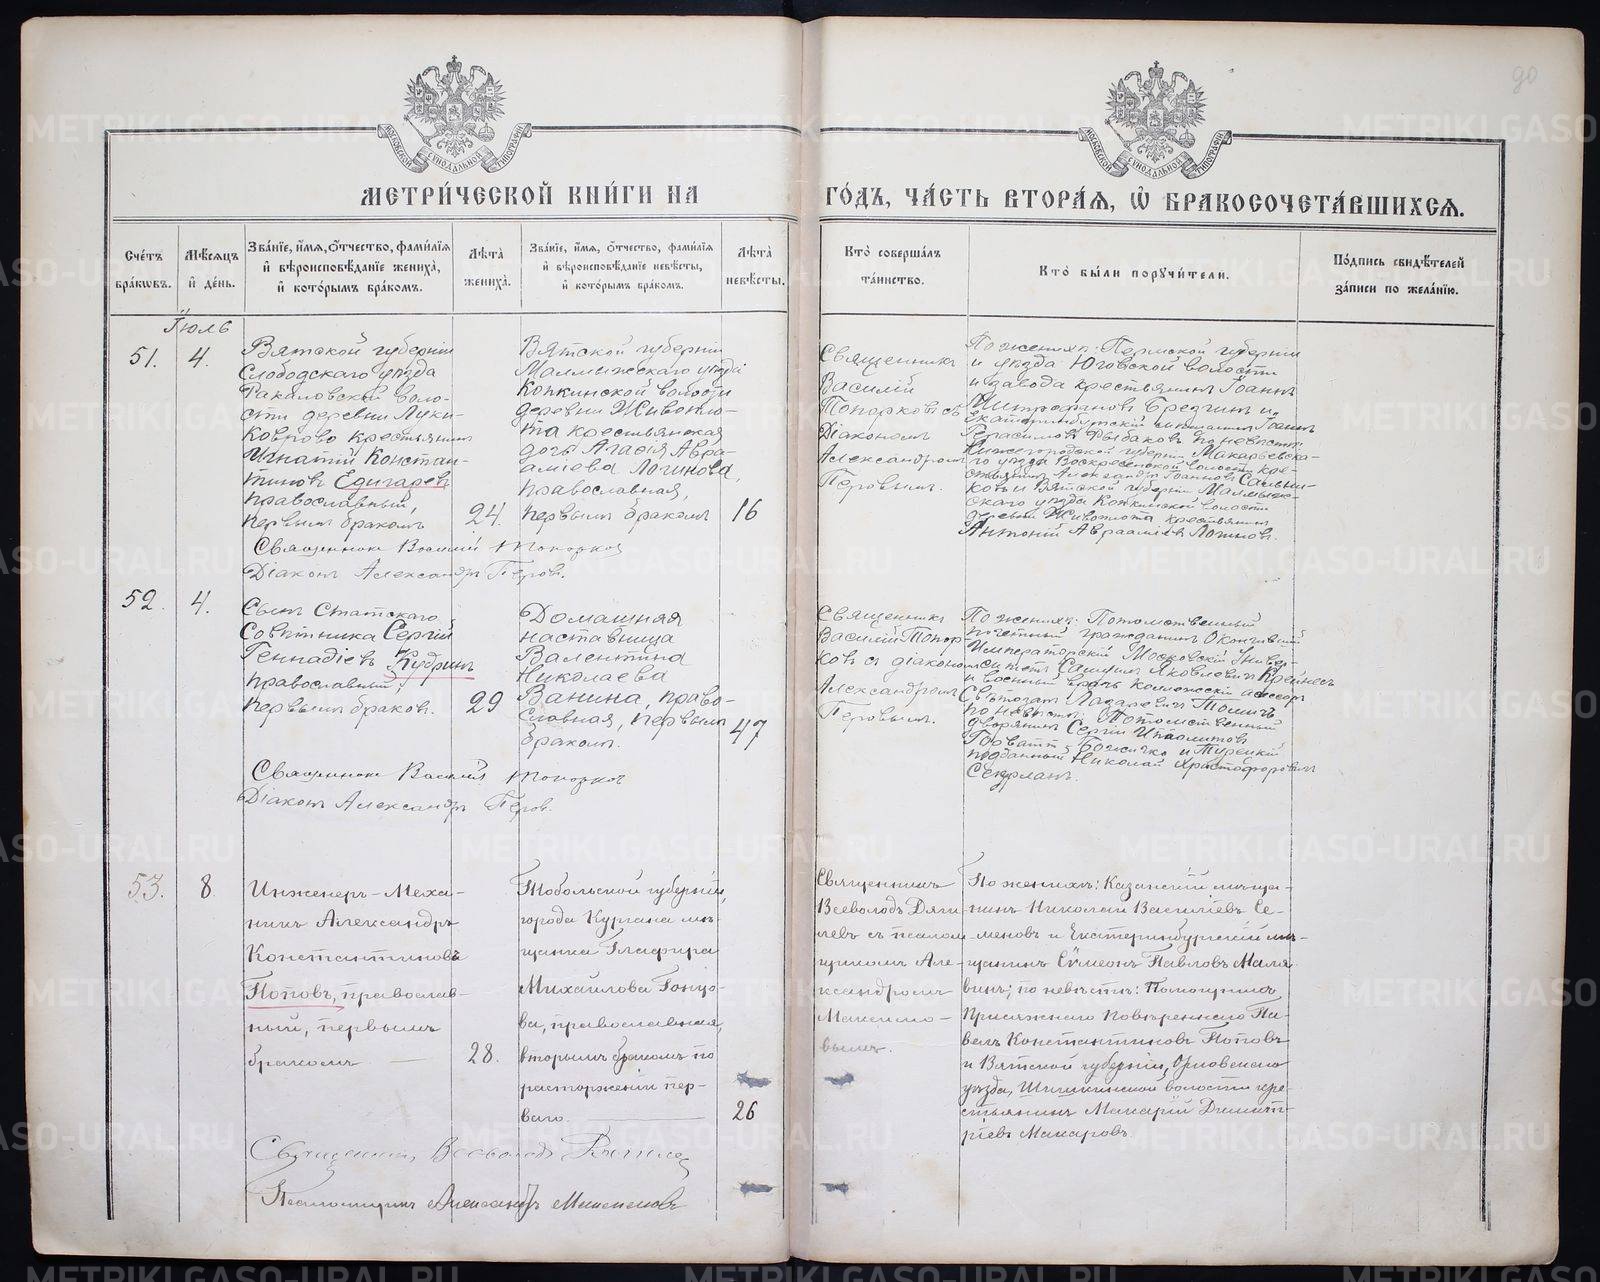 90
МОСКОВСКОЙ СѴНОДАЛЬНОЙ ТИПОГРАФІИ
МОСКОВСКОЙ СѴНОДАЛЬНОЙ ТИПОГРАФІИ
МЕТРИ́ЧЕСКОЙ КНИ́ГИ НА ГО́ДЪ, ЧА́СТЬ ВТОРА́Я, Ѡ҆ БРАКОСОЧЕТА́ВШИХСЯ.
Сче́тъ бра́кѡвъ.
Мѣ́сяцъ и҆ де́нь.
Зва́нїе, и҆́мя, ѻ҆́тчество, фами́лїя и҆ вѣроисповѣ́данїе жениха̀, и҆ кото́рымъ бра́комъ.
Лѣ́та̀ жениха̀.
Зва́нїе, и҆́мя, ѻ҆́тчество, фами́лїя и҆ вѣроисповѣ́данїе невѣ́сты, и҆ кото́рымъ бра́комъ.
Лѣ́та̀ невѣ́сты.
Кто̀ соверша́лъ та́инство.
Кто̀ бы́ли порꙋчи́тели.
По́дпись свидѣ́телей за́писи по жела́нїю.
Іюль
51.
4.
Вятской губерніи
Слободскаго уѣзда
Ракаловской воло-
сти деревни Луки-
Коврово крестьянинъ
Игнатій Констан-
тиновъ Едигаревъ
православный,
первымъ бракомъ
24.
Вятской губерніи
Малмыжскаго уѣзда
Копкинской волости
деревни Животло-
та крестьянская
дочь Агафія Авра-
аміева Логинова,
православная,
первымъ бракомъ
16
Священникъ
Василій
Топорковъ съ
Діакономъ
Александромъ
Перовымъ.
По женихѣ: Пермской губерніи
и уѣзда Юговской волости
и завода крестьянинъ Іоаннъ
Митрофановъ Брезгинъ и
Екатеринбургскій мѣщанинъ Іоаннъ
Герасимовъ Рыбаковъ по невѣстѣ:
Нижегородской губерніи Макарьевска-
го уѣзда Воскресенской волости кре-
стьянинъ Александръ Іоанновъ Сальни-
ковъ и Вятской губерніи Малмыж-
скаго уѣзда Копкинской волости
деревни Животлота крестьянинъ
Антоній Авраамiевъ Логиновъ.
Священникъ Василій Топорковъ
Діаконъ Александръ Перовъ.
52.
4.
Сынъ Статскаго
Совѣтника Сергій
Геннадіевъ Кудринъ
православный,
первымъ бракомъ.
29
Домашняя
наставница
Валентина
Николаева
Ванина, право-
славная, первымъ
бракомъ.
47
Священникъ
Василій Топор-
ковъ съ діакономъ
Александромъ
Перовымъ.
По женихѣ: Потомственный
почетный гражданинъ Окончившій
Императорскій Московскій Универ-
ситетъ Самуилъ Яковлевичъ Крейнесъ
и военный врачъ коллежскій ассесоръ
Свѣтозаръ Лазаревичъ Томичъ
по невѣстѣ: Потомственный
дворянинъ Сергій Ипполитовъ
Горватт Божичко и Турецкій
подданный Николай Христофоровичъ
Священникъ Василій Топорковъ
Діаконъ Александръ Перовъ.
53.
8.
Инженеръ-Меха-
никъ Александръ
Константиновъ
Поповъ, православ-
ный, первымъ
бракомъ
28.
Тобольской губерніи,
города Кургана мѣ-
щанка Глафира
Михайлова Гонцо-
ва, православная,
вторымъ бракомъ по
расторженіи пер-
ваго.
26
Священникъ
Всеволодъ Дяги-
левъ съ псалом-
щикомъ Але-
ксандромъ
Максимо-
вымъ.
По женихѣ: Казанскій мѣща-
нинъ Николай Василіевъ Се-
меновъ и Екатеринбургскій мѣ-
щанинъ Сѵмеонъ Павловъ Маля-
винъ; по невѣстѣ: Помощникъ
Присяжнаго Повѣреннаго Па-
велъ Константиновъ Поповъ
и Вятской губерніи, Орловскаго
уѣзда, Шишкинской волости кре-
стьянинъ Макарій Димит-
ріевъ Макаровъ.
Священникъ Всеволодъ Дягилевъ
Псаломщикъ Александръ Максимовъ
METRIKI.GASO-URAL.RU